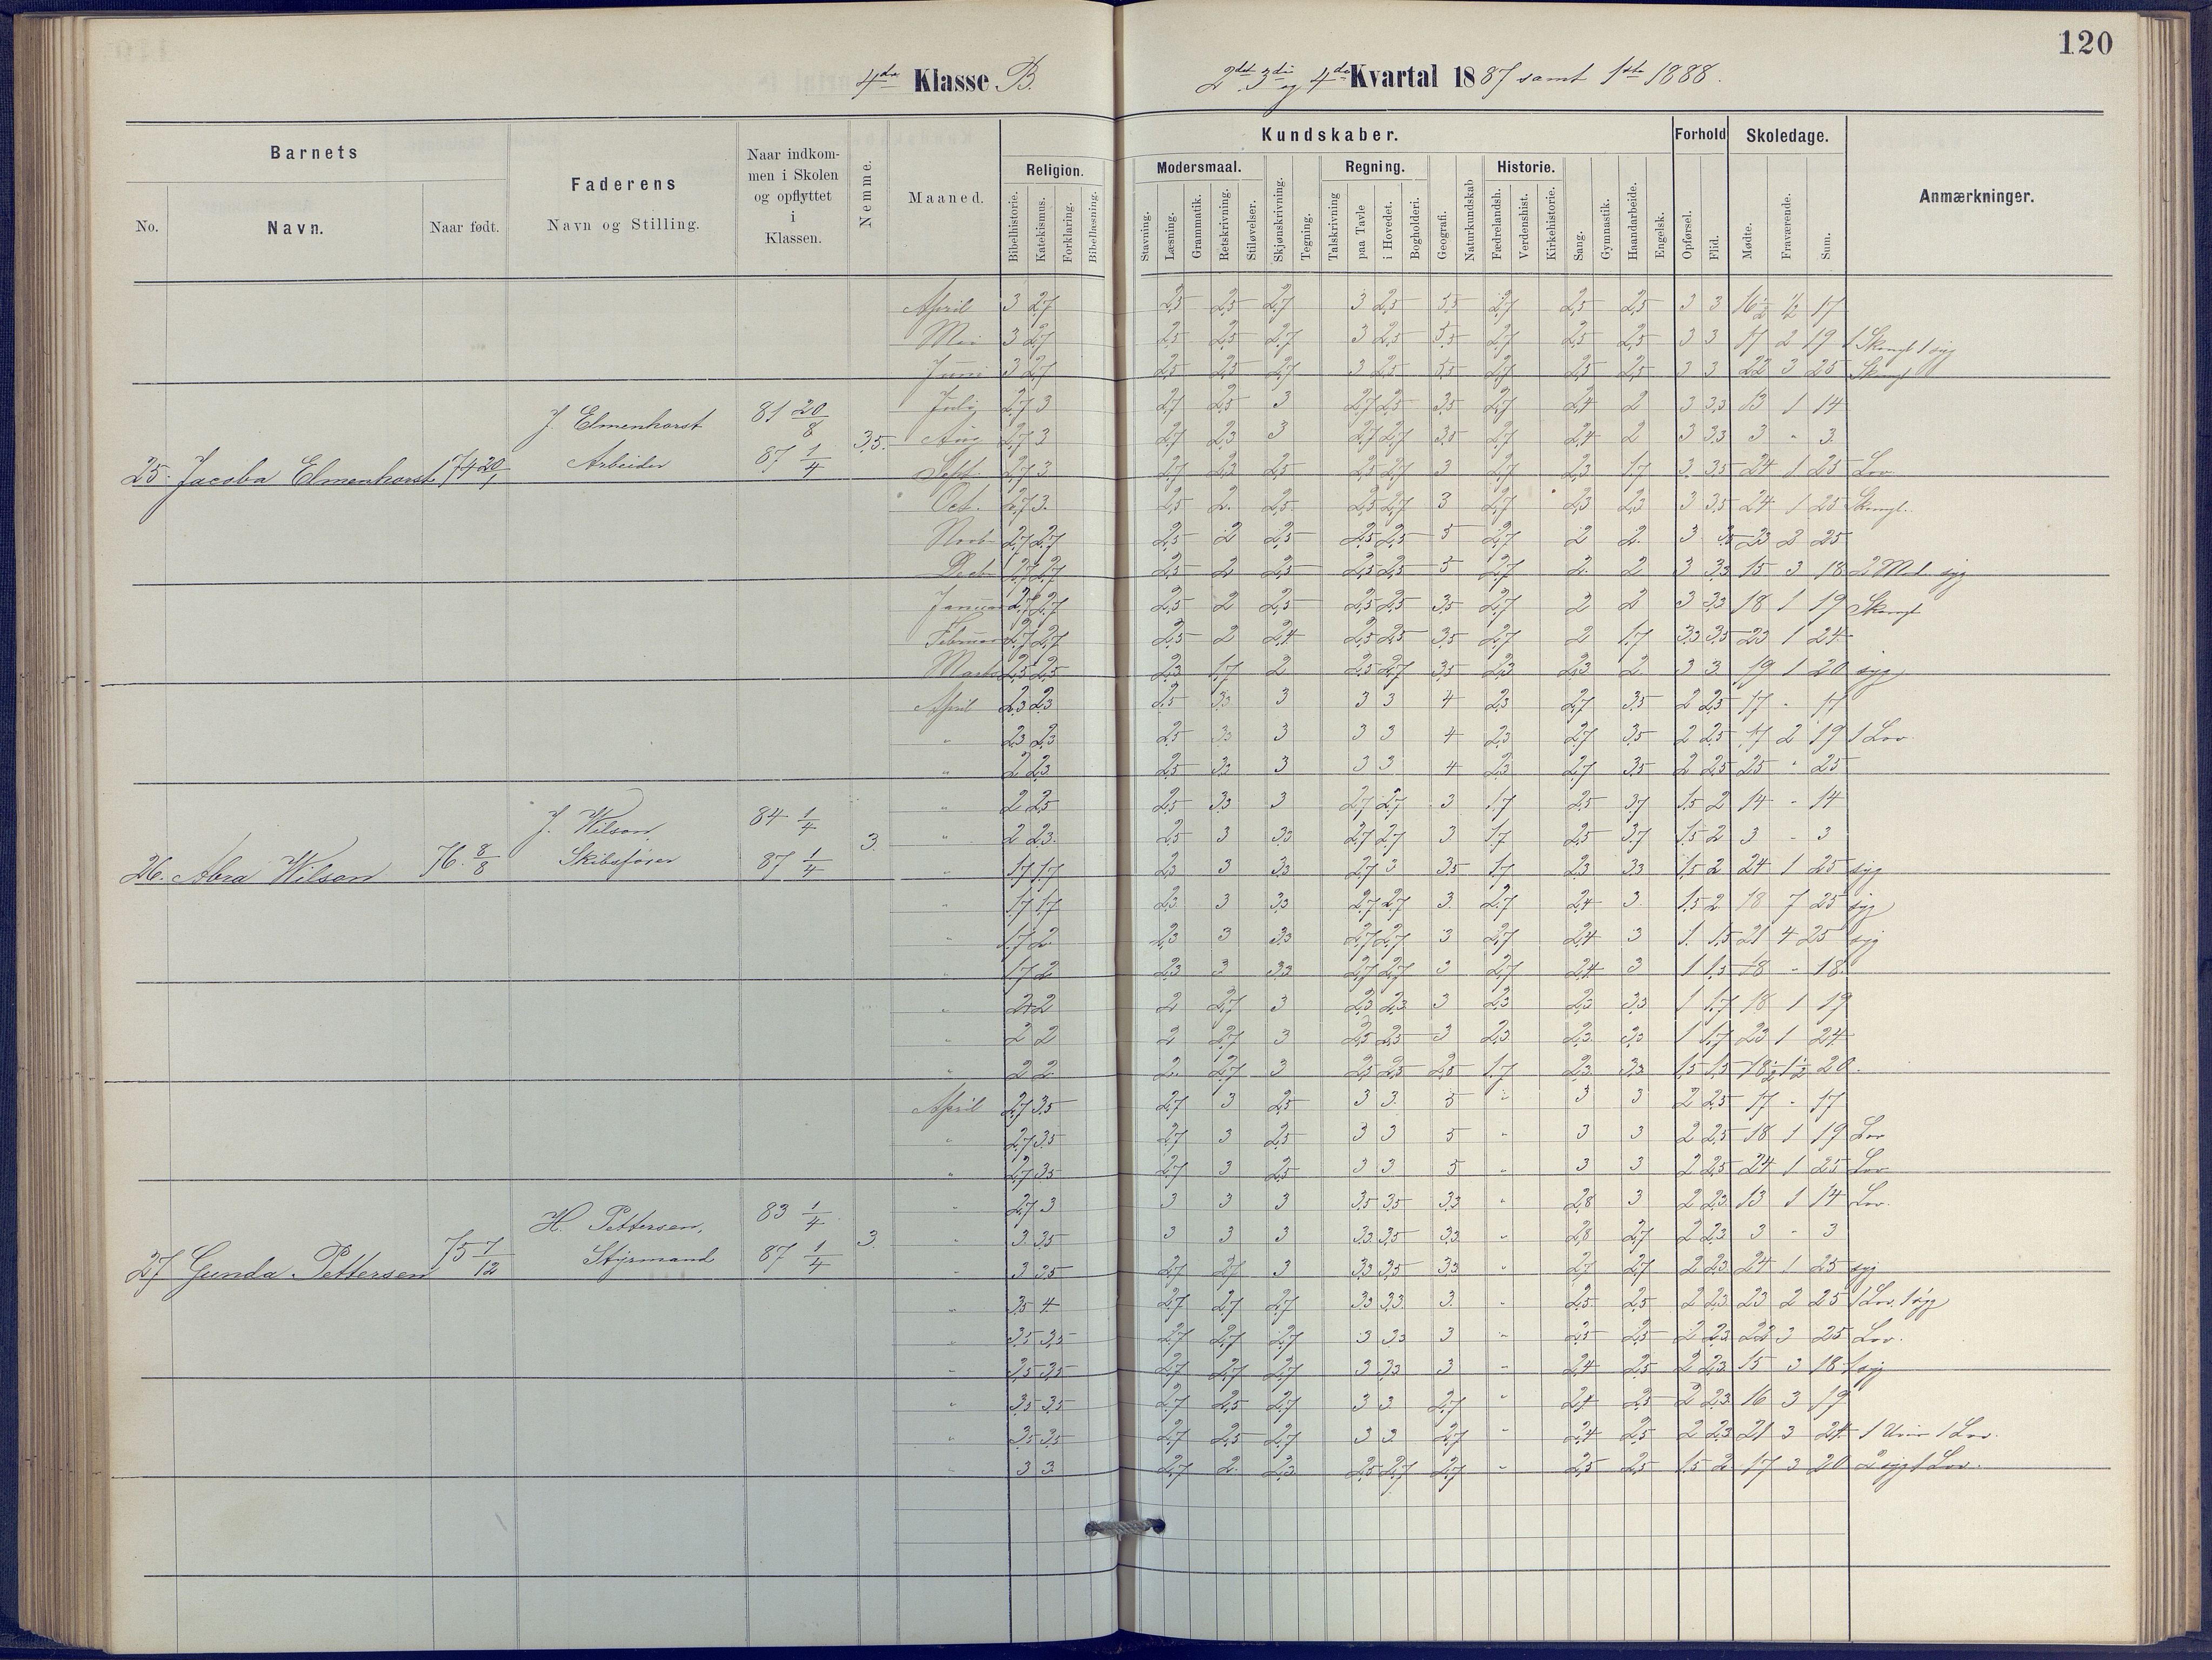 120
4de Klasse B.
2det 3die og 4de Kvartal 1887 samt 1ste 1888.
Barnets
No.
Navn.
Naar født.
Faderens
Navn og Stilling.
Naar indkom-
men i Skolen
og opflyttet
i
Klassen.
Nemme.
Maaned.
Kundskaber.
Religion.
Bibelhistorie.
Katekismus.
Forklaring.
Bibellæsning.
Modersmaal.
Stavning.
Læsning.
Grammatik.
Retskrivning.
Stiløvelser.
Skjønskrivning.
Tegning.
Regning.
Talskrivning
paa Tavle
i Hovedet.
Bogholderi.
Geografi.
Naturkundskab
Historie.
Fædrelandsh.
Verdenshist.
Kirkehistorie.
Sang.
Gymnastik.
Haandarbeide.
Engelsk.
Forhold
Opførsel.
Flid.
Skoledage.
Mødte.
Fraværende.
Sum.
Anmærkninger.
April 3 2,7 2,5 2,5 2,7 3 2,5 3,5 2,7 2,5 2,5 3 3 16½ ½ 17
Mai 3 2,7 2,5 2,5 2,7 3 2,5 3,5 2,7 2,5 2,5 3 3 17 2 19 1 syg
Juni 3 2,7 2,5 2,5 2,7 3 2,5 3,5 2,7 2,5 2,5 3 3 22 3 25
July 2,7 3 2,7 2,5 3 2,7 2,5 3,5 2,7 2,4 2 3 3,3 13 1 14
J. Elmenhorst 81 20/8
Aug 2,7 3 2,7 2,3 3 2,7 2,7 3,5 2,7 2,4 2 3 3,3 3 " 3
25. Jacoba Elmenhorst 74 20/1 Arbeider 87 1/4 3,5.
Sept. 2,7 3 2,7 2,3 2,5 2,5 2,7 3 2,7 2,3 1,7 3 3,5 24 1 25 Lov.
Oct. 2,7 3. 2,5 2. 2,5 2,5 2,7 3 2,7 2,3 2,3 3 3,5 24 1 25
Novb 2,7 2,7 2,5 2 2,5 2,5 2,5 3 2,7 2 2. 3 3,5 23 2 25
Decb 2,7 2,7 2,5 2 2,5 2,5 2,5 3 2,7 2. 2 3 3,3 15 3 18 syg
Januar 2,7 2,7 2,5 2 2,5 2,5 2,5 3,5 2,7 2 2 3 3,3 18 1 19
Februar 2,7 2,7 2,5 2 2,4 2,5 2,5 3,5 2,7 2 1,7 3,3 3,5 23 1 24
Marts 2,5 2,5 2,3 1,7 2 2,5 2,7 3,5 2,3 2,3 2. 3 3. 19 1 20 syg
April 2,3 2,3 2,5 3,3 3 3 3 4 2,3 2,7 3,5 2 2,5 17 - 17
" 2,3 2,3 2,5 3,3 3 3 3 4 2,3 2,7 3,5 2 2,5 17 2 19 1 Lov.
" 2 2,3 2,5 3,3 3 3 3 4 2,3 2,7 3,5 2 2,5 25 " 25
" 2 2,5 2,5 3,3 3 2,7 2,7 3 1,7 2,5 3,7 1,5 2 14 - 14
J. Wilson, 84 1/4
" 2 2,3. 2,5 3 3,3 2,7 2,7 3 1,7 2,5 3,7 1,5 2 3 - 3
26. Abra Wilson 76. 8/8 Skibsfører 87 1/4 3.
" 1,7 1,7 2,3 3 3,3 2,7 3 3,5 1,7 2,3 3,3 1,5 2 24 1 25 syg
" 1,7 1,7 2,3 3 3,3 2,7 2,7 3. 2,7 2,4 3. 1,5 2 18 7 25 syg
" 1,7 2 2,3 3 3,3 2,7 2,7 3 2,7 2,4 3 1. 1,5 21 4 25 syg
" 1,7 2 2,3 3 3,3 2,7 2,7 3 2,7 2,4 3 1 1,5 18 - 18.
" 2 2 2 2,7 3 2,3 2,3 3 2,3 2,3 3,3 1 1,7 18 1 19
" 2 2 2 2,7 3 2,5 2,5 3 2,3 2,3 3,3 1 1,7 23 1 24
" 2 2 2. 2,7 3 2,5 2,5 2,5 1,7 2,3 3,3 1,5 1,5 18½ 1½ 20.
April 2,7 3,5 2,7 3 2,5 3 3. 5 " 3 3 2 2,5 17 - 17
" 2,7 3,5 2,7 3 2,5 3 3 5 " 3 3 2 2,5 18 1 19 Lov
" 2,7 3,5 2,7 3 2,5 3 3 5 " 3 3 2 2,5 24 1 25 Lov
" 2,7 3 3 3 3 3,5 3,5 3,3 " 2,8 3 2 2,3 13 1 14 Lov.
H. Pettersen, 83 1/4
" 3 3,5 3 3 3 3,3 3,5 3,3 " 2,8 2,7 2 2,3 3 - 3
27 Gunda Pettersen 75 7/12 Styrmand 87 1/4 3.
" 3 3,5 2,7 2,7 3 3,3 3,5 3,3 " 2,7 2,7 2 2,3 24 1 25 syg
" 3,5 4 2,7 2,7 2,7 3,3 3,3 3. " 2,5 2,5 2 2,3 23 2 25 1 Lov. 1 syg
" 3,5 3,5 2,7 2,7 2,7 3 3,3 3 " 2,5 2,5 2 2,3 22 3 25 Lov.
" 3,5 3,5 2,7 2,7 2,7 3 3,3 3 " 2,4 2,5 2 2,3 15 3 18 1 syg
" 3,5 3,5 2,7 2,5 2,7 3 3 2,7 " 2,4 2,5 2 2,3 16 3 19
" 3,5 3,5 2,7 2,5 2,7 3 3 2,7 " 2,4 2,5 2 2,3 21 3 24 1 Lov.
" 3 3 2,7 2. 2,3 2,5 2,7 2,7 " 2,5 2,5 1,5 2 17 3 20 2 syg 1 Lov.